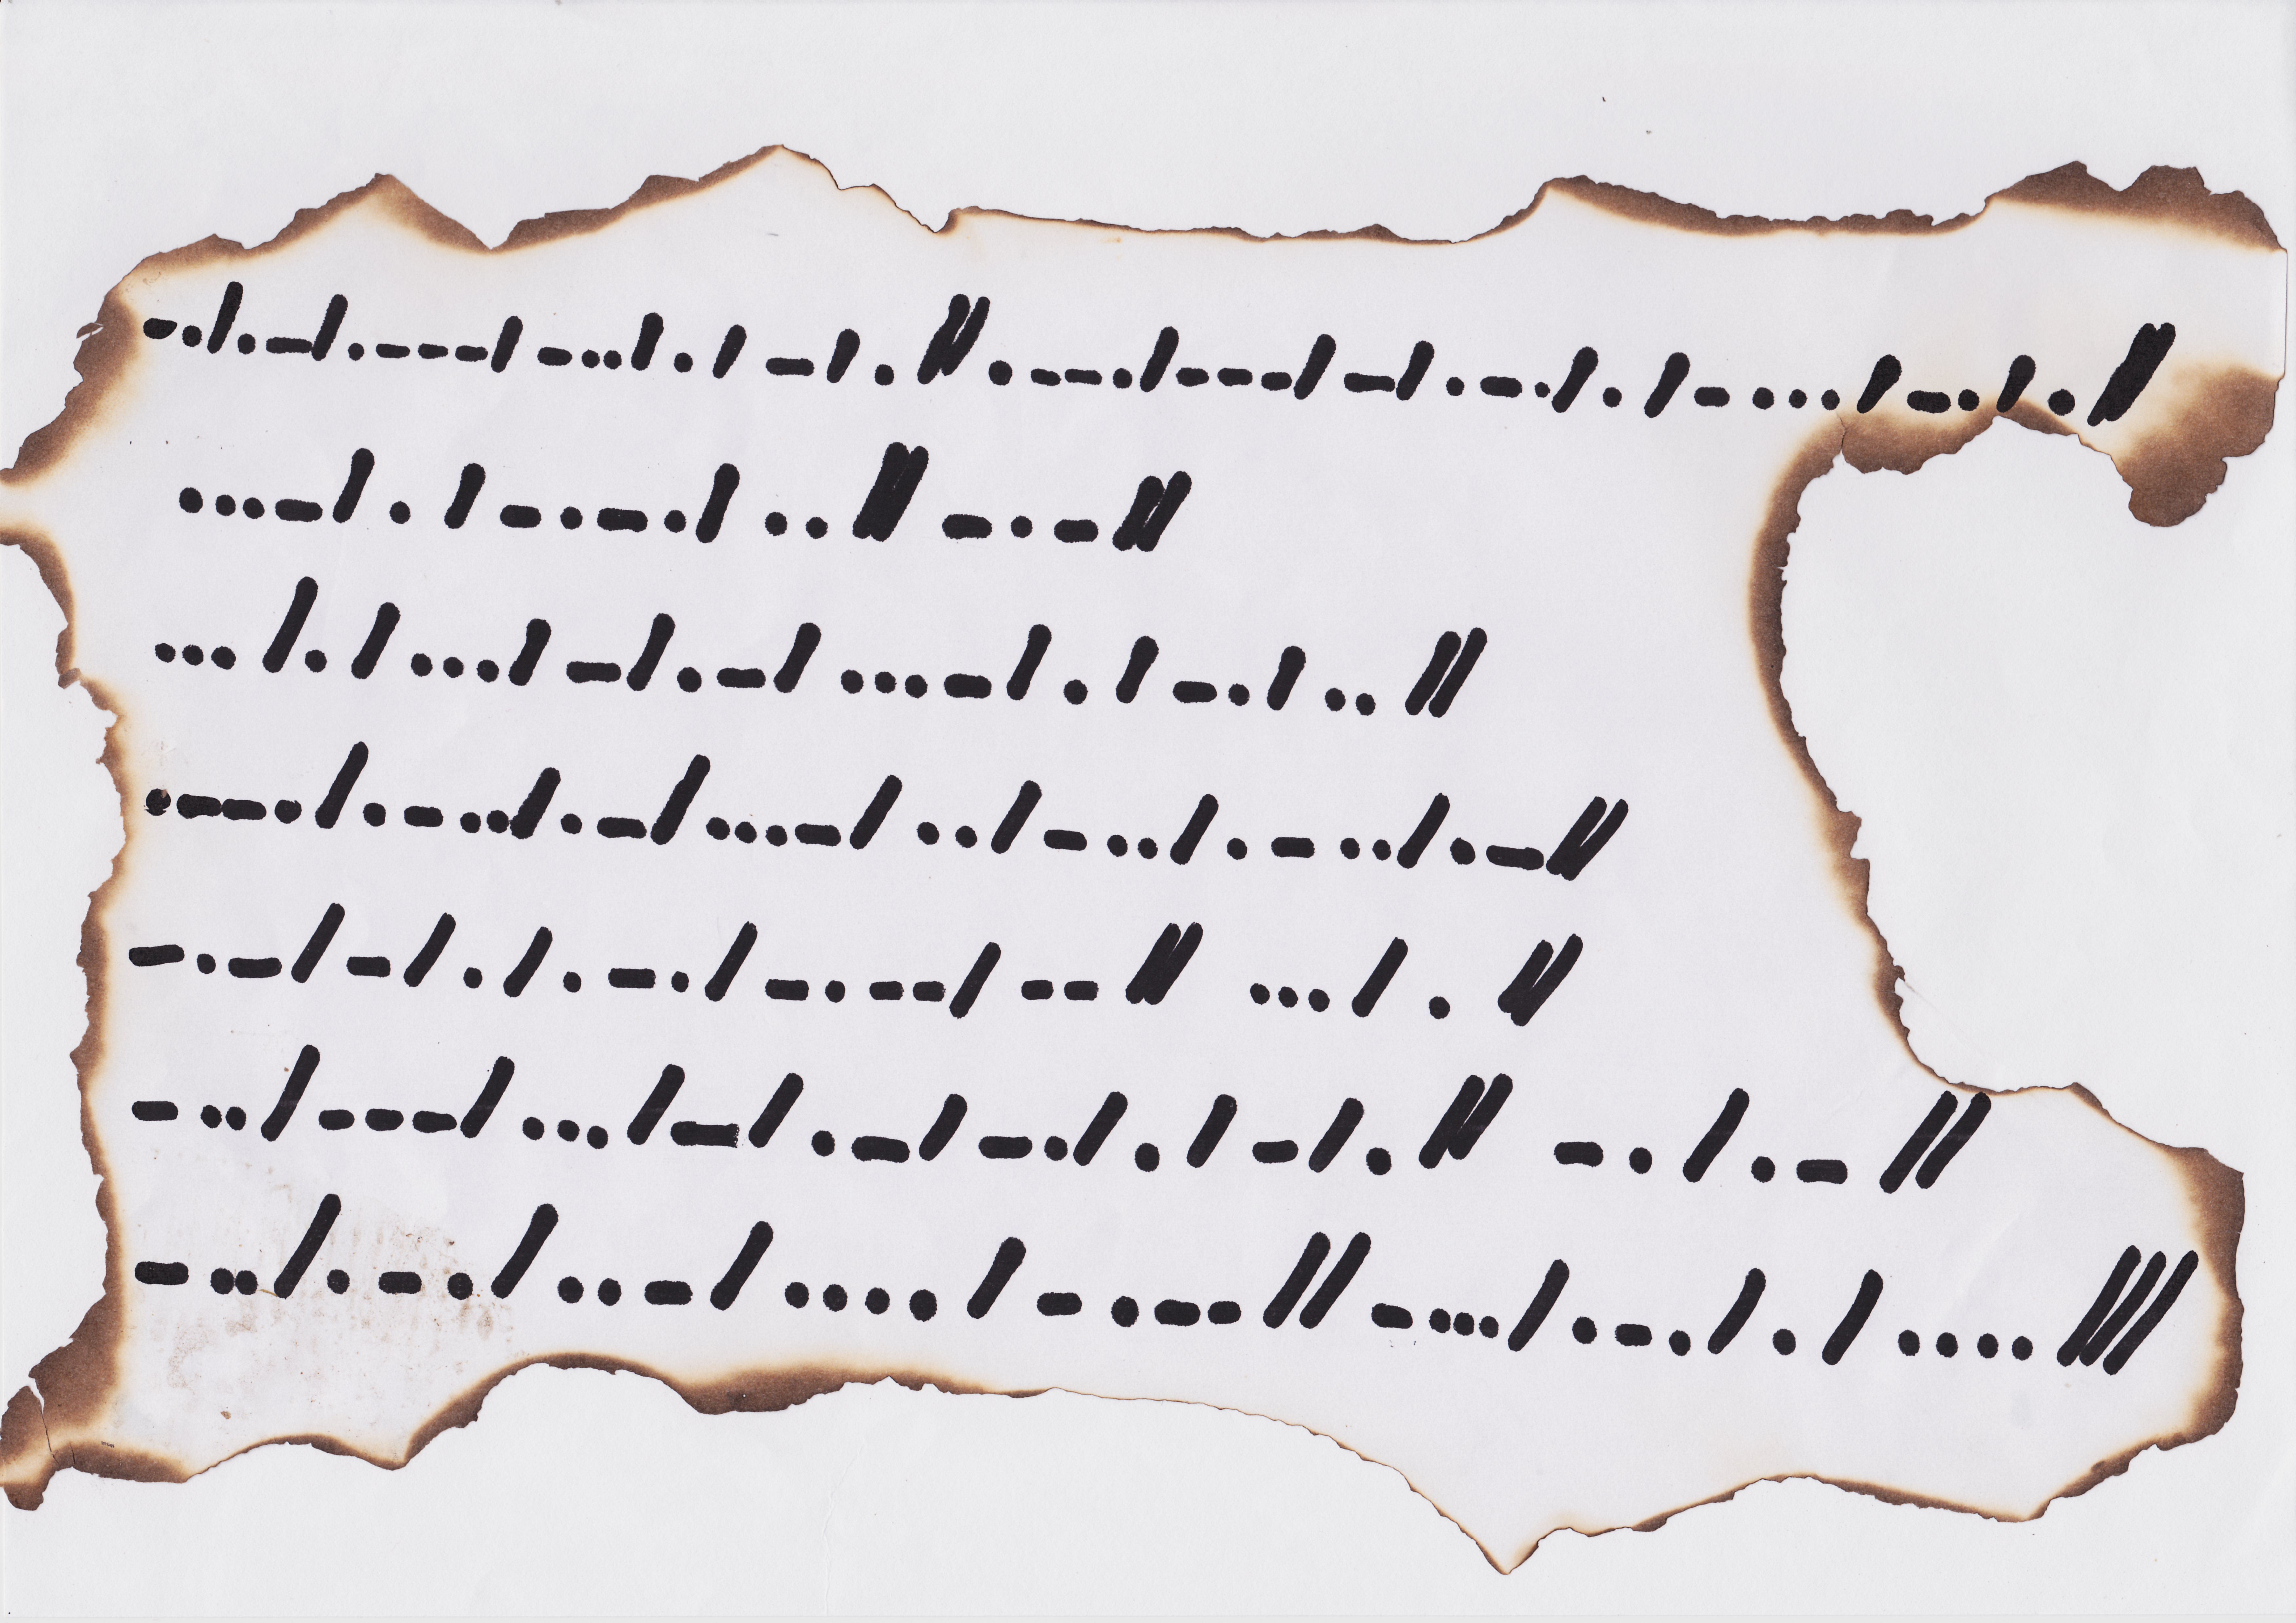 -./.-/.---/-.././-/.//.--./---/-/.-././-.../-././/
...-/./-.-./..//-.-//
..././.../-/.-/...-/./-./..//
.--./.-../.-/...-/../-../.-../.-//
-.-/-/./.-./-.--/--// ..././/
-../---/.../-/.-/-././-/.// -./.-//
-../.-./..-/..../-.--//-.../.-././....///